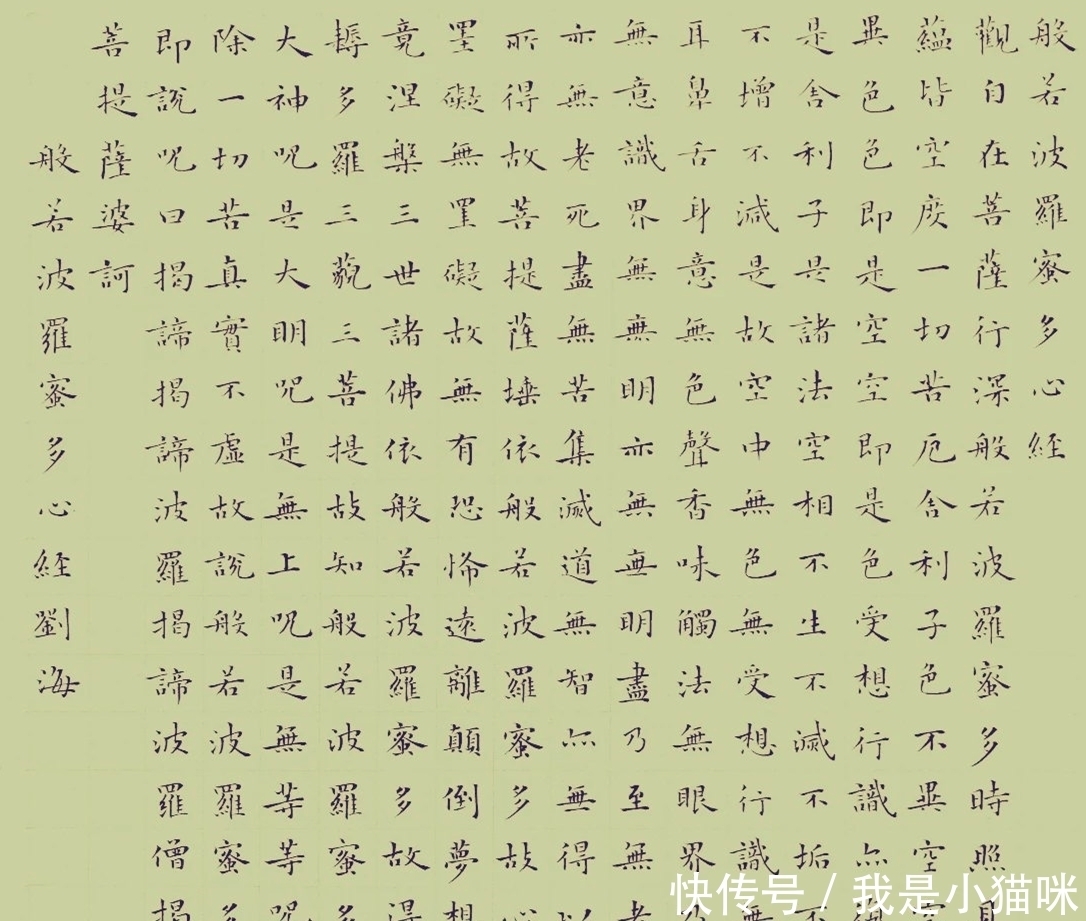 般若波羅蜜多心経
觀自在菩薩行深般若波羅蜜多時照
蘊皆空度一切苦厄舍利子色不異空
異色色即是空空即是色受想行識亦
是舍利子是諸法空相不生不滅不垢
不增不減是故空中無色無受想行識
耳鼻舌身意無色聲香味觸法無眼界
無意識界無無明亦無無明盡乃至無老
亦無老死盡無苦集滅道無智亦無得以
所得故菩提薩埵依般若波羅蜜多故心
罣礙無罣礙故無有恐怖遠離顛倒夢想
竟涅槃三世諸佛依般若波羅蜜多故得
耨多羅三藐三菩提故知般若波羅蜜多
大神呪是大明呪是無上呪是無等等呪
除一切苦真實不虛故說般若波羅蜜多
即說呪曰揭諦揭諦波羅揭諦波羅僧揭
菩提薩婆訶
般若波羅蜜多心経劉海
快传号 / 我是小猫咪